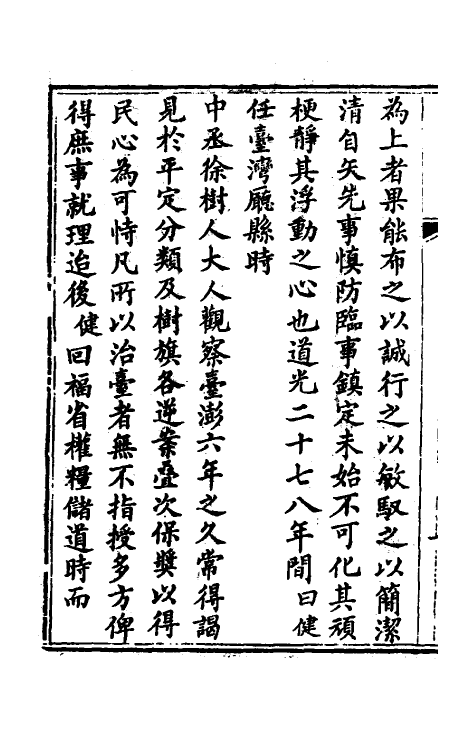 為上者果能布之以誠行之以敏馭之以簡潔
清自矢先事慎防臨事鎮定未始不可化其頑
梗靜其浮動之心也道光二十七八年間曰健
任臺灣廳縣時
中丞徐樹人大人觀察臺澎六年之久常得謁
見於平定分類及樹旗各逆案疊次保獎以得
民心為可恃凡所以治臺者無不指授多方俾
得庶事就理迨後健回福省權糧儲道時而